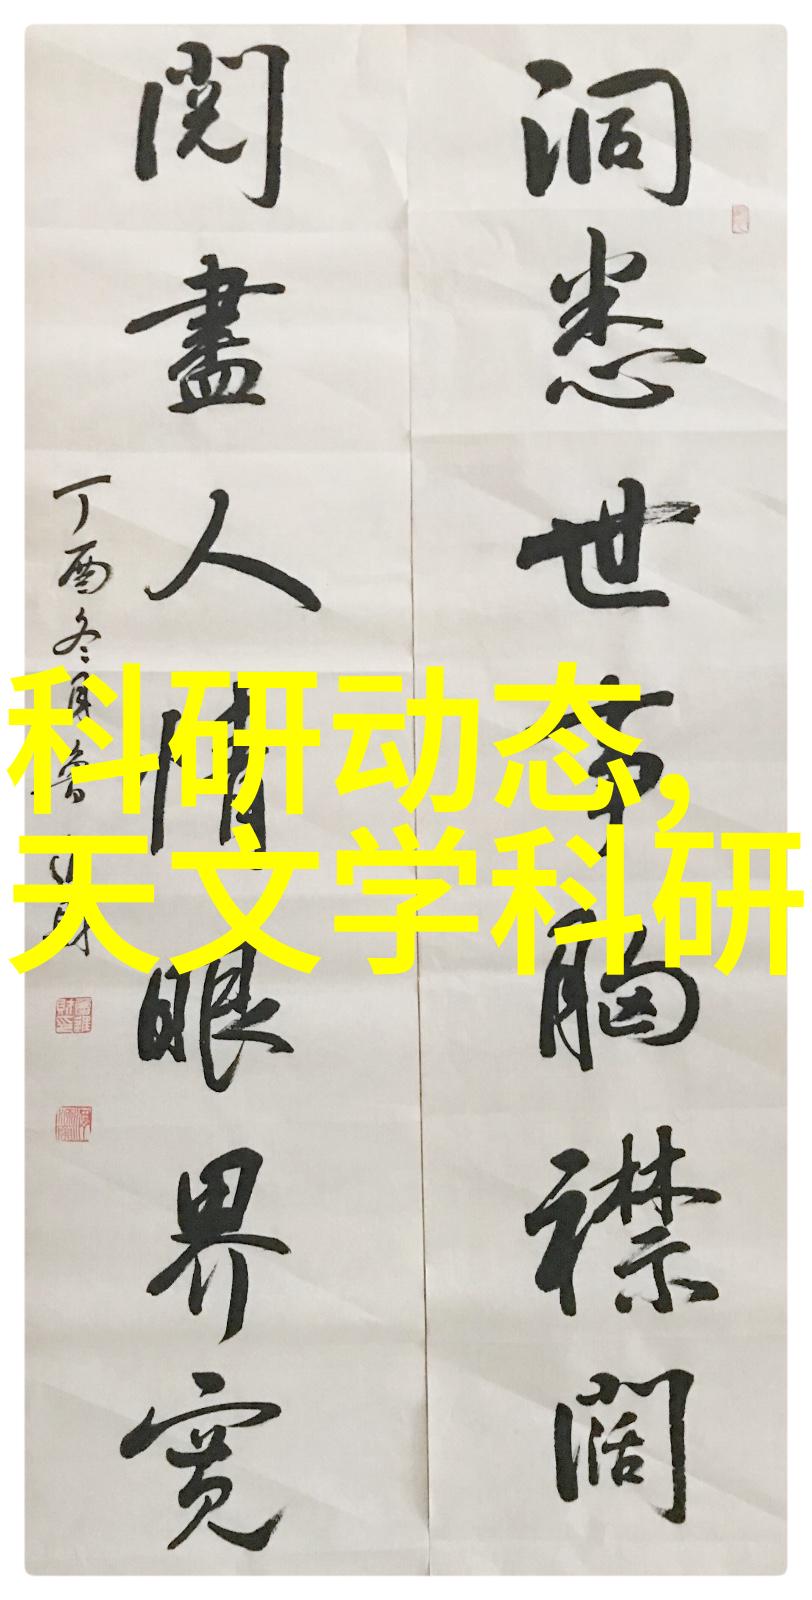 洞悉世事胸襟阔
阅尽人情眼界宽
丁酉冬月鲁
科研动态,
天文学科研